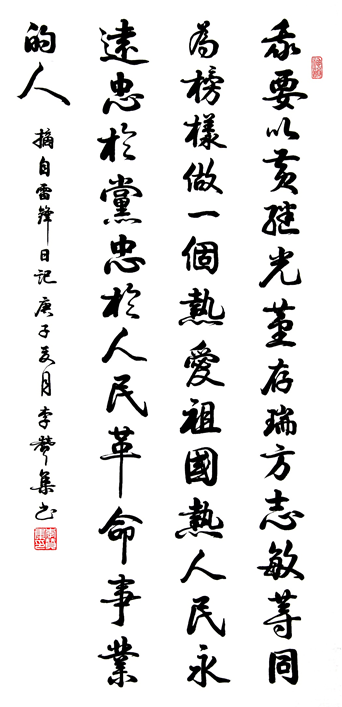 我要以黄继光董存瑞方志敏等同
為榜樣做一個熱愛祖國熱人民永
遠忠於黨忠於人民革命事業
的人
摘自雷鋒日记庚子夏月李赞集书